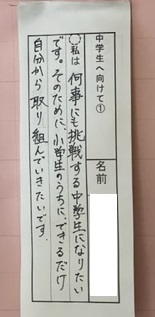 中学生へ向けて①
名前
私は何事にも挑戦する中学生になりたい
です。そのために、小学生のうちに、できるだけ
自分から取り組んでいきたいです。